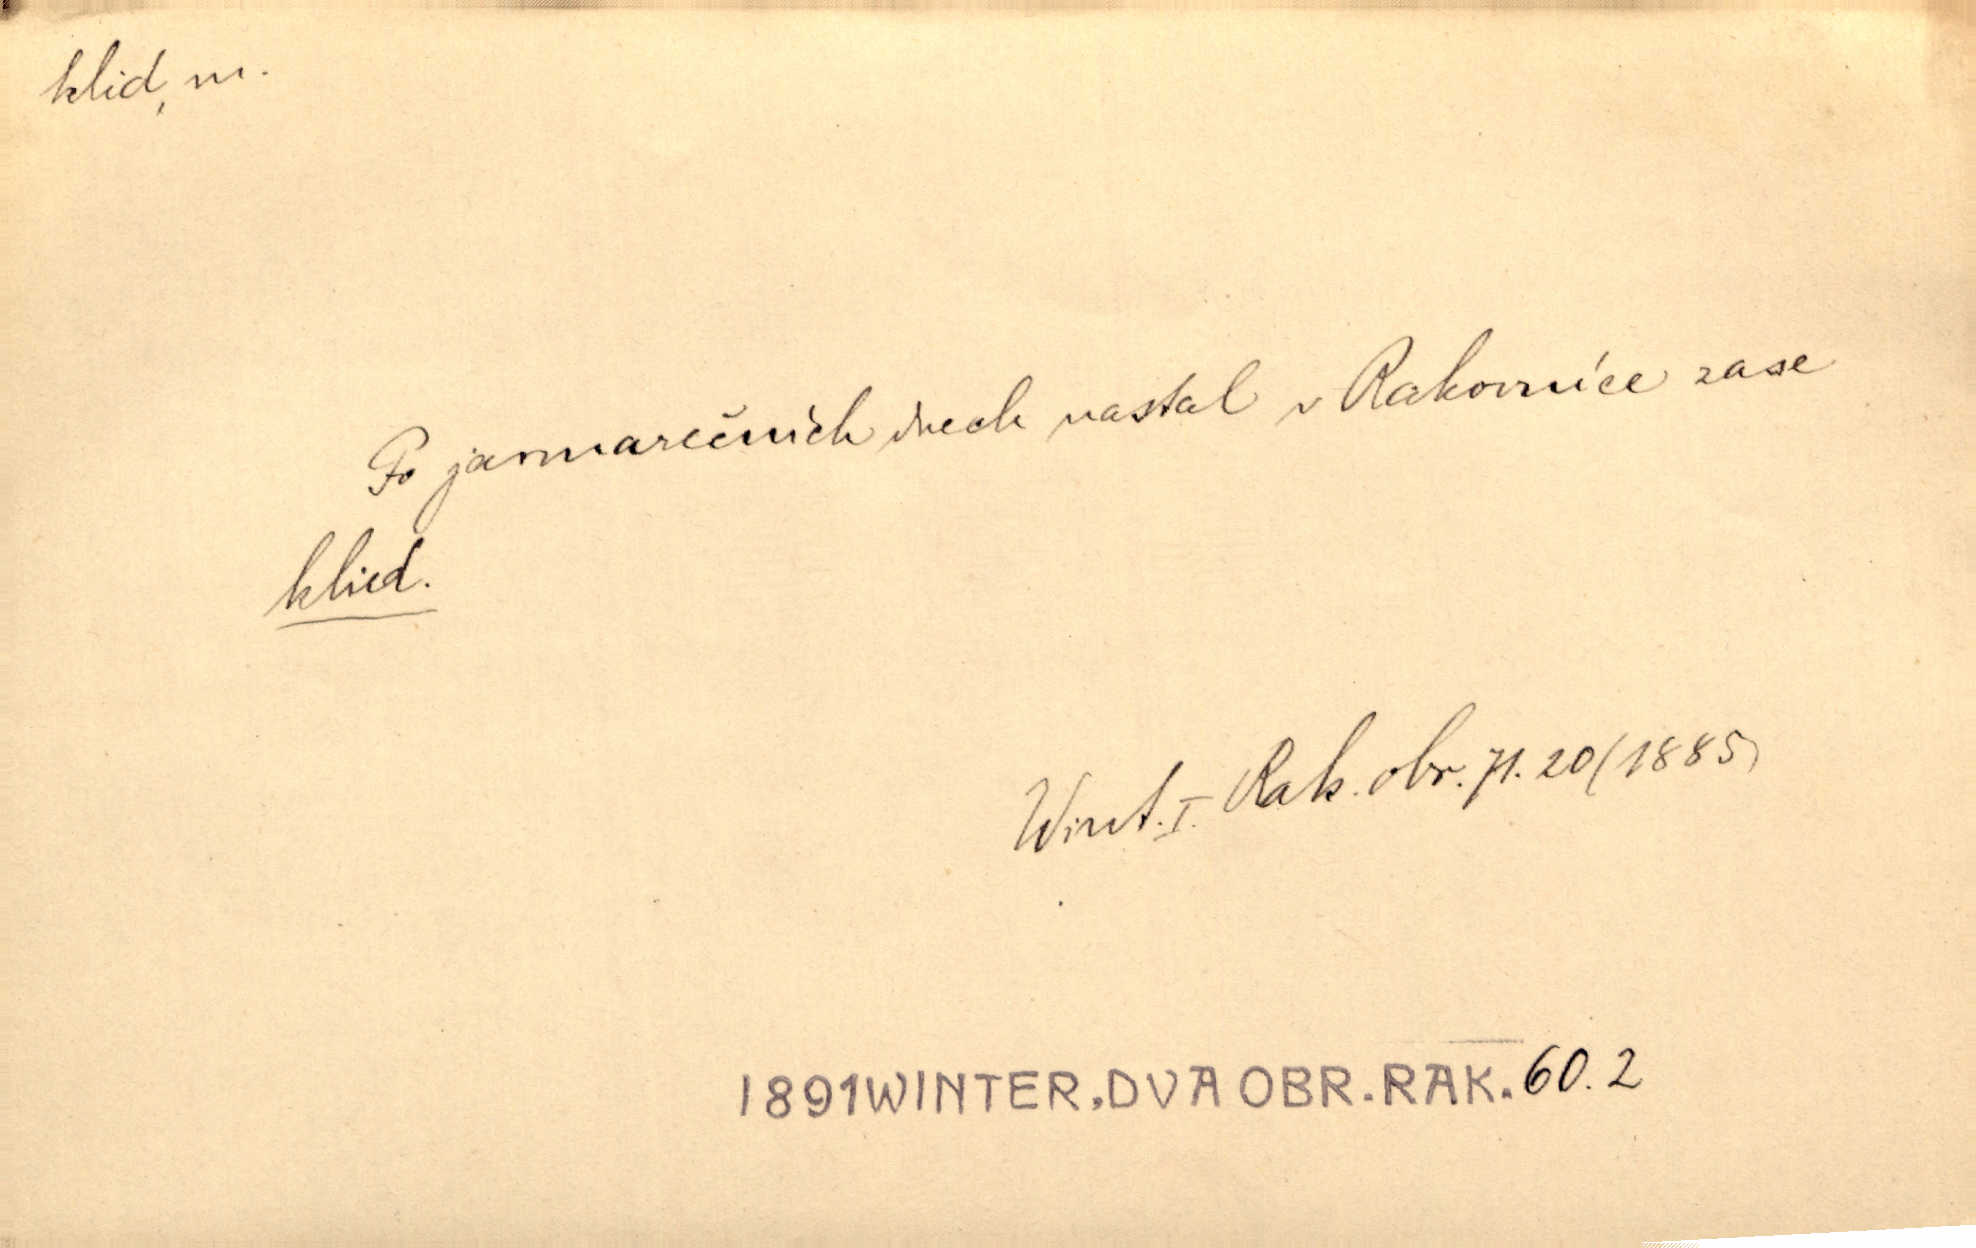 klid, m.
Po jarmarečních dnech nastal v Rakovníce zase
klid.
Wint. I. Rak. obr. 71. 20 (1885)
1891 WINTER, DVA OBR. RAK. 60. 2